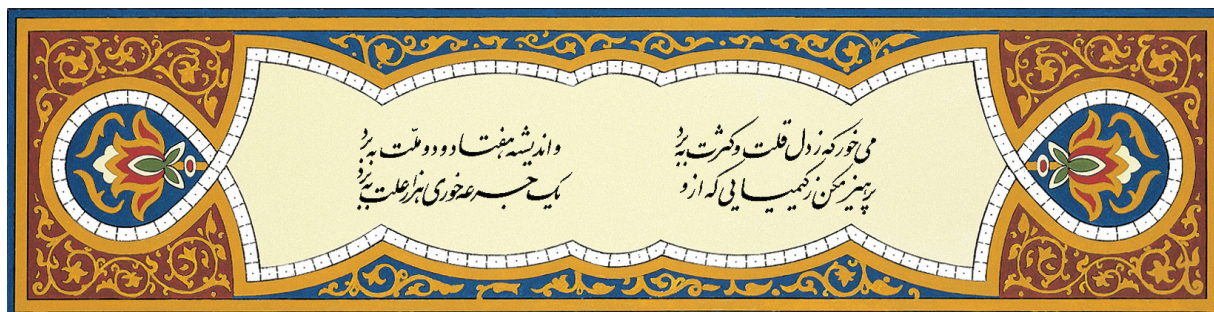 می خور که ز دل قلت و کثرت ببرد
و اندیشه هفتاد و دو ملّت ببرد
پرهیز مکن ز کیمیایی که ازو
یک جرعه خوری هزار علت ببرد